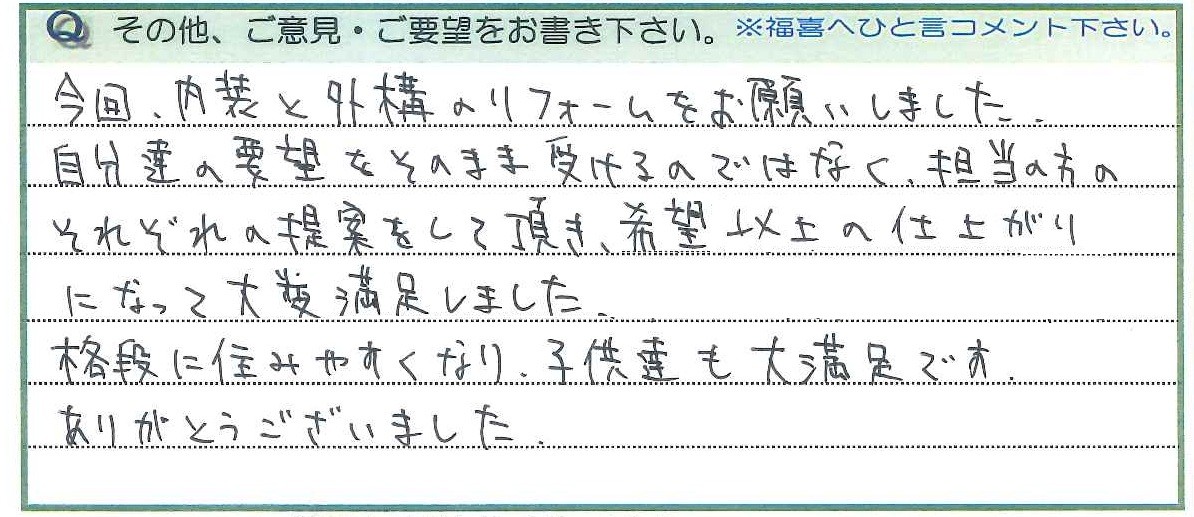 Q その他、ご意見・ご要望をお書き下さい。※福喜へひと言コメント下さい。
今回、内装と外構のリフォームをお願いしました。
自分達の要望をそのまま受けるのではなく、担当の方の
それぞれの提案をして頂き、希望以上の仕上がり
になって大変満足しました。
格段に住みやすくなり、子供達も大満足です。
ありがとうございました。